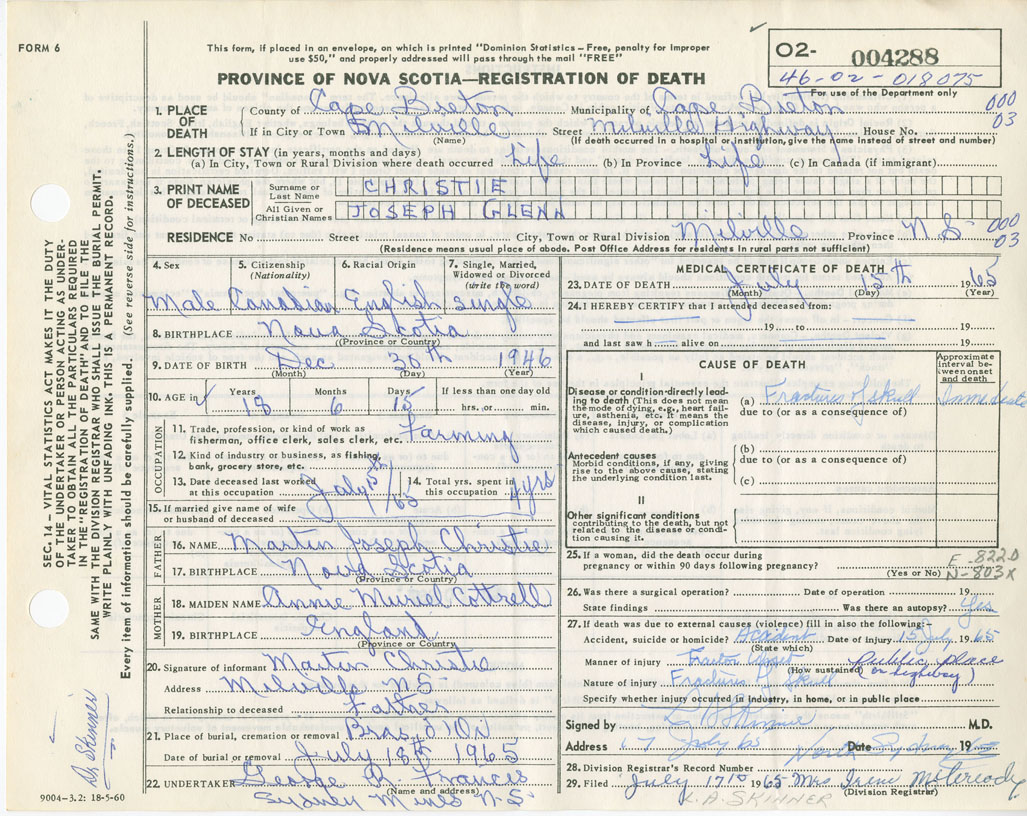 FORM 6
This form, if placed in an envelope, on which is printed "Dominion Statistics – Free, penalty for improper
use $50," and properly addressed will pass through the mail "FREE"
PROVINCE OF NOVA SCOTIA—REGISTRATION OF DEATH
02- 004288
46-02-018075
For use of the Department only
000
03
1. PLACE OF DEATH
County of Cape Breton Municipality of Cape Breton
If in City or Town Milville Street Milville Highway House No.
(Name) (If death occurred in a hospital or institution, give the name instead of street and number)
2. LENGTH OF STAY (in years, months and days)
(a) In City, Town or Rural Division where death occurred Life (b) In Province Life (c) In Canada (if immigrant)
3. PRINT NAME OF DECEASED
Surname or Last Name CHRISTIE
All Given or Christian Names JOSEPH GLENN
RESIDENCE No Street City, Town or Rural Division Milville Province N.S.
000
03
(Residence means usual place of abode. Post Office Address for residents in rural parts not sufficient)
4. Sex 5. Citizenship (Nationality) 6. Racial Origin 7. Single, Married, Widowed or Divorced (Write the word)
Male Canadian English single
8. BIRTHPLACE Nova Scotia
(Province or Country)
9. DATE OF BIRTH Dec 30th 1946
(Month) (Day) (Year)
10. AGE in Years Months Days If less than one day old
18 6 15 hrs., or min.
OCCUPATION
11. Trade, profession, or kind of work as fisherman, office clerk, sales clerk, etc. Farming
12. Kind of industry or business, as fishing, bank, grocery store, etc.
13. Date deceased last worked at this occupation July 15th/65
14. Total yrs. spent in this occupation 4 yrs
15. If married give name of wife or husband of deceased
FATHER
16. NAME Martin Joseph Christie
17. BIRTHPLACE Nova Scotia
(Province or Country)
MOTHER
18. MAIDEN NAME Annie Muriel Cottrell
19. BIRTHPLACE England
(Province or Country)
20. Signature of informant Martin Christie
Address Milville N.S-
Relationship to deceased Father
21. Place of burial, cremation or removal Bras d'Or
Date of burial or removal July 18th 1965
22. UNDERTAKER George R. Francis
(Name and address)
Sydney Mines N.S.
MEDICAL CERTIFICATE OF DEATH
23. DATE OF DEATH July 15th 1965
(Month) (Day) (Year)
24. I HEREBY CERTIFY that I attended deceased from:
19 to 19
and last saw h alive on 19
CAUSE OF DEATH
Approximate interval between onset and death
I
Disease or condition directly leading to death (This does not mean the mode of dying, e.g., heart failure, asthenia, etc. It means the disease, injury, or complication which caused death.)
(a) Fracture of skull
due to (or as a consequence of)
Antecedent causes
Morbid conditions, if any, giving rise to the above cause, stating the underlying condition last.
(b)
due to (or as a consequence of)
(c)
II
Other significant conditions
contributing to the death, but not related to the disease or condition causing it.
25. If a woman, did the death occur during
pregnancy or within 90 days following pregnancy?
(Yes or No)
E-822.0
N-803X
26. Was there a surgical operation? Date of operation 19
State findings Was there an autopsy? Yes
27. If death was due to external causes (violence) fill in also the following:—
Accident, suicide or homicide? Accident Date of injury 15 July 1965
(State which)
Manner of injury Tractor upset public place
(How sustained) (or highway)
Nature of injury Fracture of skull
Specify whether injury occurred in industry, in home, or in public place
Signed by M.D.
Address 17 July 65 North Sydney Date 19
28. Division Registrar's Record Number
29. Filed July 17 1965 Mrs Irene
(Division Registrar)
L. A. SKINNER
SEC. 14 – VITAL STATISTICS ACT MAKES IT THE DUTY
OF THE UNDERTAKER OR PERSON ACTING AS UNDER-
TAKER TO OBTAIN ALL THE PARTICULARS REQUIRED
IN THE "REGISTRATION OF DEATH" AND TO FILE THE
SAME WITH THE DIVISION REGISTRAR WHO SHALL ISSUE THE BURIAL PERMIT.
WRITE PLAINLY WITH UNFADING INK. THIS IS A PERMANENT RECORD.
Every item of information should be carefully supplied. (See reverse side for instructions.)
Dr Skinner
9004-3.2: 18-5-60